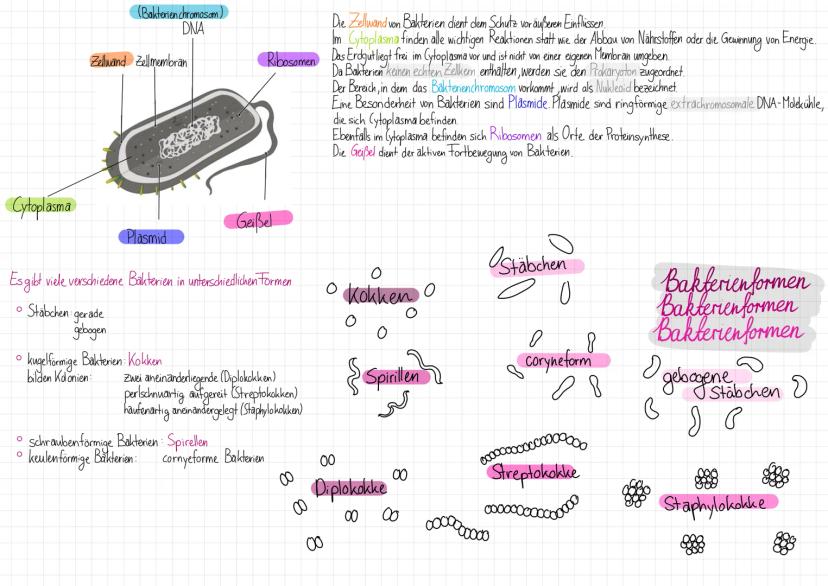 (Bakterienchromosom)
DNA
Zellwand Zellmembran
Ribosomen
Cytoplasma
Plasmid
Geißel
Die Zellwand von Bakterien dient dem Schutz vor äußeren Einflüssen.
Im Cytoplasma finden alle wichtigen Reaktionen statt wie der Abbau von Nährstoffen oder die Gewinnung von Energie.
Das Erdgut liegt frei im Cytoplasma vor und ist nicht von einer eigenen Membran umgeben.
Da Bakterien keinen echten Zellkern enthalten, werden sie den Prokaryoten zugeordnet.
Der Bereich, in dem das Bakterienchromosom vorkommt, wird als Nukleoid bezeichnet.
Eine Besonderheit von Bakterien sind Plasmide. Plasmide sind ringförmige extrachromosomale DNA-Moleküle,
die sich Cytoplasma befinden.
Ebenfalls im Cytoplasma befinden sich Ribosomen als Orte der Proteinsynthese.
Die Geißel dient der aktiven Fortbewegung von Bakterien.
Es gibt viele verschiedene Bakterien in unterschiedlichen Formen
Stäbchen gerade
gebogen
kugelförmige Bakterien: Kokken
bilden Kolonien: zwei aneinanderliegende (Diplokokken)
perlschnurartig aufgereit (Streptokokken)
haufenartig aneinandergelegt (Staphylokokken)
schraubenförmige Bakterien: Spirellen
keulenförmige Bakterien: cornyeforme Bakterien
Kokken
Stäbchen
Bakterienformen
Bakterienformen
Bakterienformen
Spirillen
coryneform
gebogene
Stäbchen
Diplokokke
Streptokokke
Staphylokokke